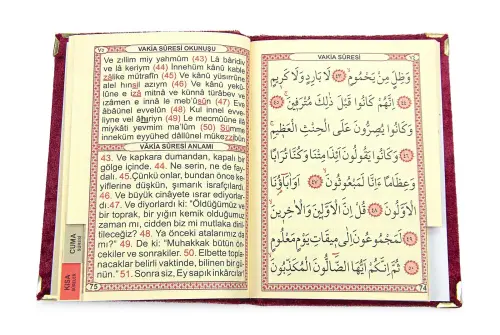 VAKIA SÛRESİ OKUNUŞU
Ve zıllim miy yahmûm (43) Lâ bâridiv
ve lâ keriym (44) İnnehüm kânû kable
zâlike mütrafîn (45) Ve kânû yüsırrûne
alel hınsil azıym (46) Ve kânû yekû-
lûne e izâ mitnâ ve künnâ türâbev ve
ızâmen e innâ le meb'ûsûn (47) Eve
âbâünel evvelûn (48) Kul innel evve-
lîyne vel âhırîyn (49) Le mecmûûne ilâ
miykâti yevmim ma'lûm (50) Sümme
inneküm eyyühed dâllûnel mükezzibûn
VÂKİA SÛRESİ ANLAMI
43. Ve kapkara dumandan, kapalı bir
gölge içinde. 44. Ne serin, ne de fay-
dalı. 45.Çünkü onlar, bundan önce ke-
yiflerine düşkün, şımarık israfçılardı.
46. Ve büyük cinâyete ısrar ediyorlar-
dı.47. Ve diyorlardı ki: "Öldüğümüz ve
bir toprak, bir yığın kemik olduğumuz
zaman mı, cidden biz mi mutlaka diril-
tileceğiz? 48. Ya önceki atalarımız da
mı?" 49. De ki: "Muhakkak bütün ön-
cekiler ve sonrakiler. 50. Elbette topla-
nacaklar belirli vaktinde, bilinen bir gü-
nün." 51. Sonra siz, Ey sapık inkârcılar!
75
CUMA
KISA
VAKİA SÛRESİ
وَظِلٍّ مِنْ يَحْمُومٍ ﴿٤٣﴾ لَا بَارِدٍ وَلَا كَرِيمٍ
﴿٤٤﴾ اِنَّهُمْ كَانُوا قَبْلَ ذٰلِكَ مُتْرَفِينَ ﴿٤٥﴾
وَكَانُوا يُصِرُّونَ عَلَى الْحِنْثِ الْعَظِيمِ
﴿٤٦﴾ وَكَانُوا يَقُولُونَ اَئِذَا مِتْنَا وَكُنَّا تُرَابًا
وَعِظَامًا ءَاِنَّا لَمَبْعُوثُونَ ﴿٤٧﴾ اَوَاٰبَاؤُنَا
الْاَوَّلُونَ ﴿٤٨﴾ قُلْ اِنَّ الْاَوَّلِينَ وَالْاٰخِرِينَ ﴿٤٩﴾
لَمَجْمُوعُونَ اِلٰى مِيقَاتِ يَوْمٍ مَعْلُومٍ
﴿٥٠﴾ ثُمَّ اِنَّكُمْ اَيُّهَا الضَّالُّونَ الْمُكَذِّبُونَ
74